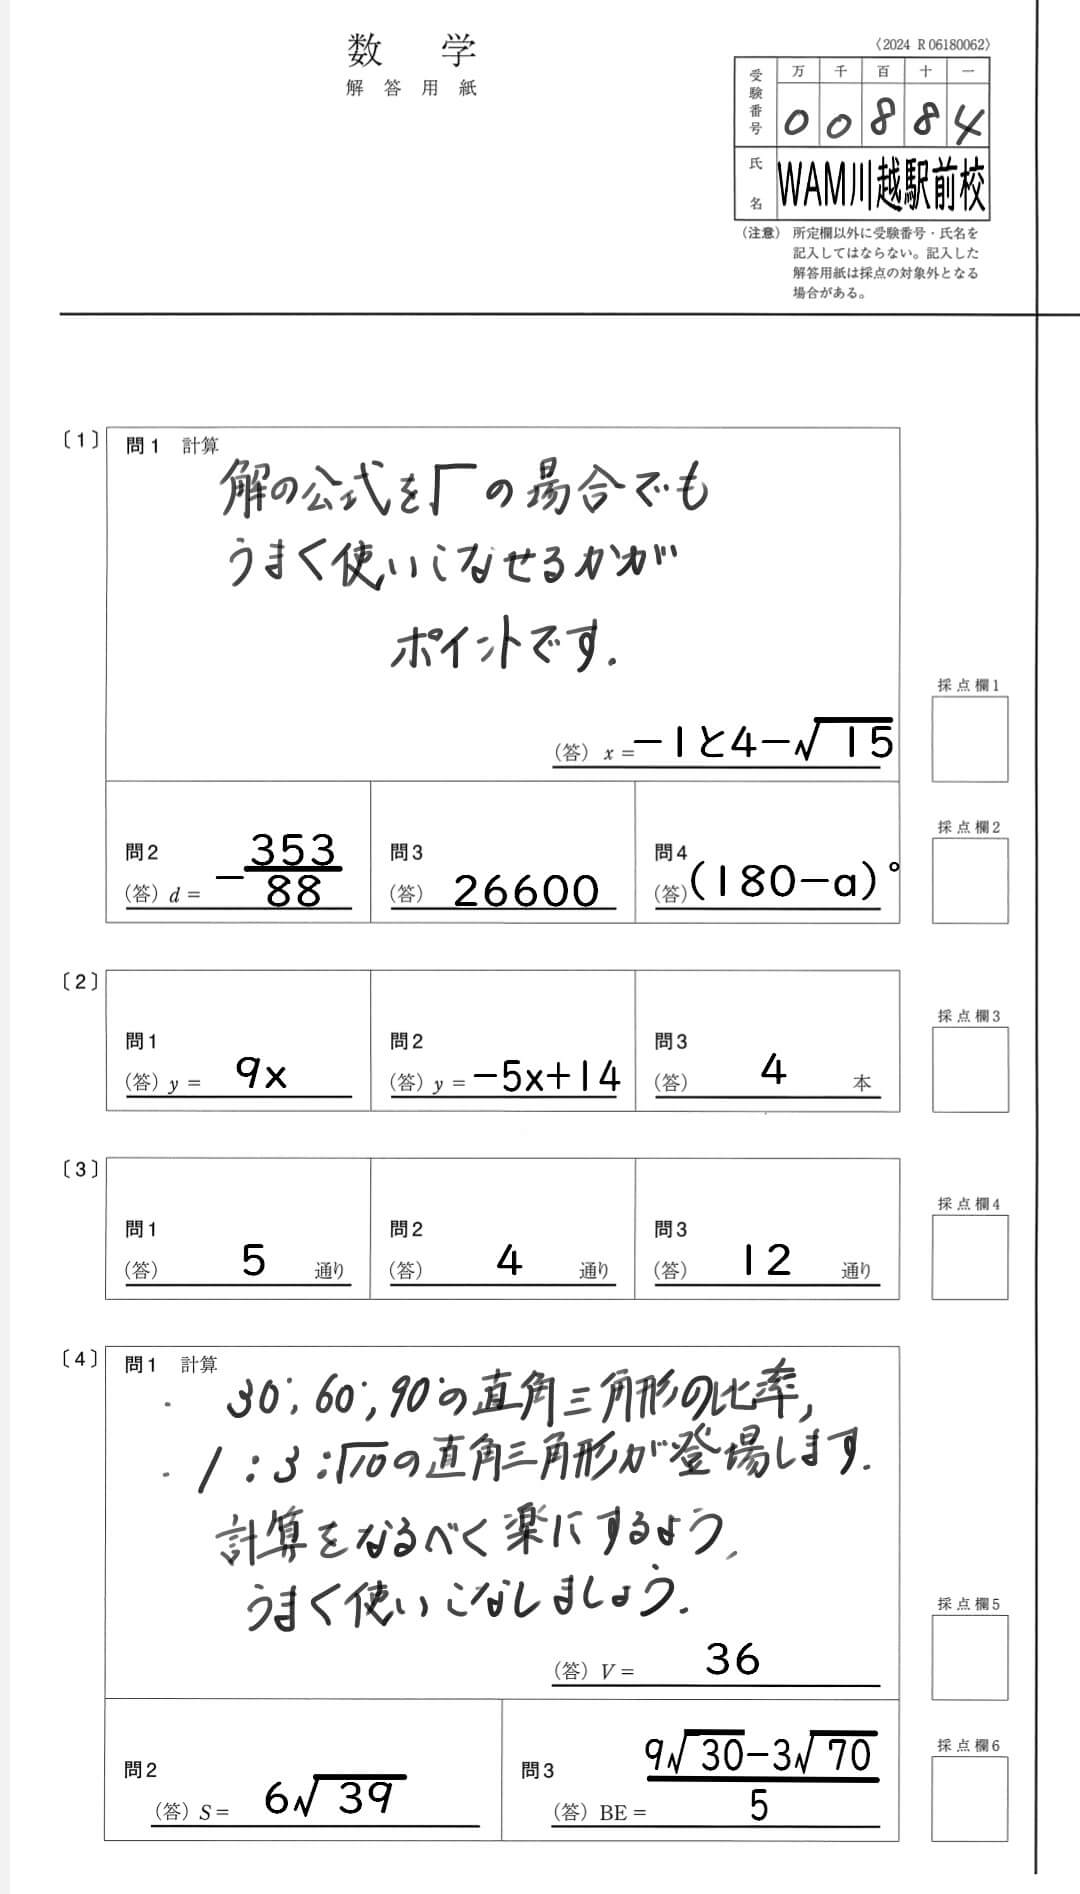 数 学
解答用紙
〈2024 R 06180062〉
受験番号 万 千 百 十 一
0 0 8 8 4
氏名 WAM川越駅前校
（注意） 所定欄以外に受験番号・氏名を
記入してはならない。記入した
解答用紙は採点の対象外となる
場合がある。
〔1〕 問1 計算
解の公式を√の場合でも
うまく使いこなせるかが
ポイントです.
（答）x = −1と4−√15
採点欄1
問2
（答）d = −353/88
問3
（答） 26600
問4
（答） (180−a)°
採点欄2
〔2〕
問1
（答）y = 9x
問2
（答）y = −5x+14
問3
（答） 4 本
採点欄3
〔3〕
問1
（答） 5 通り
問2
（答） 4 通り
問3
（答） 12 通り
採点欄4
〔4〕 問1 計算
・ 30°, 60°, 90°の直角三角形の比率,
・ 1 : 3 : √10の直角三角形が登場します.
計算をなるべく楽にするよう,
うまく使いこなしましょう.
（答）V = 36
採点欄5
問2
（答）S = 6√39
問3
（答）BE = (9√30−3√70)/5
採点欄6